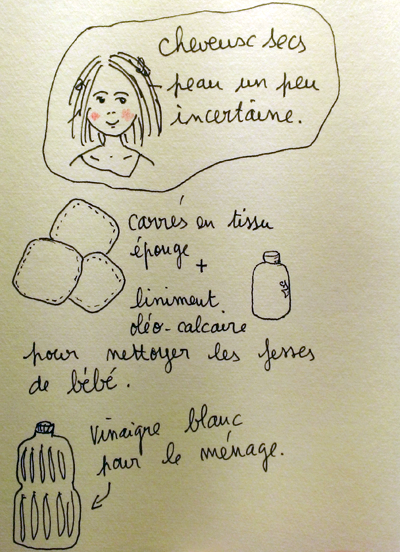 cheveux secs
peau un peu
incertaine.
carrés en tissu
éponge
+
liniment
oléo-calcaire
pour nettoyer les fesses
de bébé.
vinaigre blanc
pour le ménage.